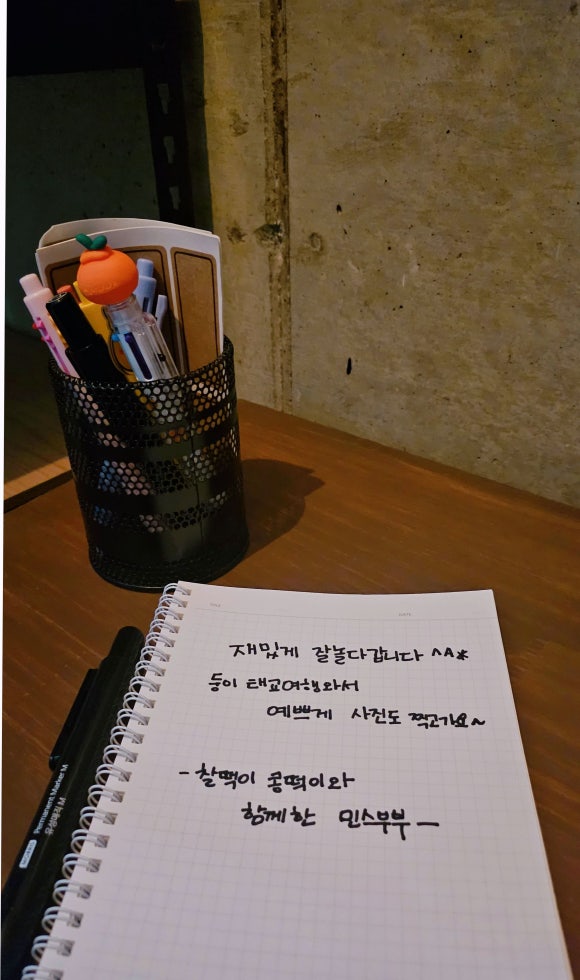 재밌게 잘놀다갑니다 ^^*
둥이 태교여행와서
예쁘게 사진도 찍고가요~
- 찰떡이 콩떡이와
함께한 민스부부 -
Permanent Marker M
유성매직 M